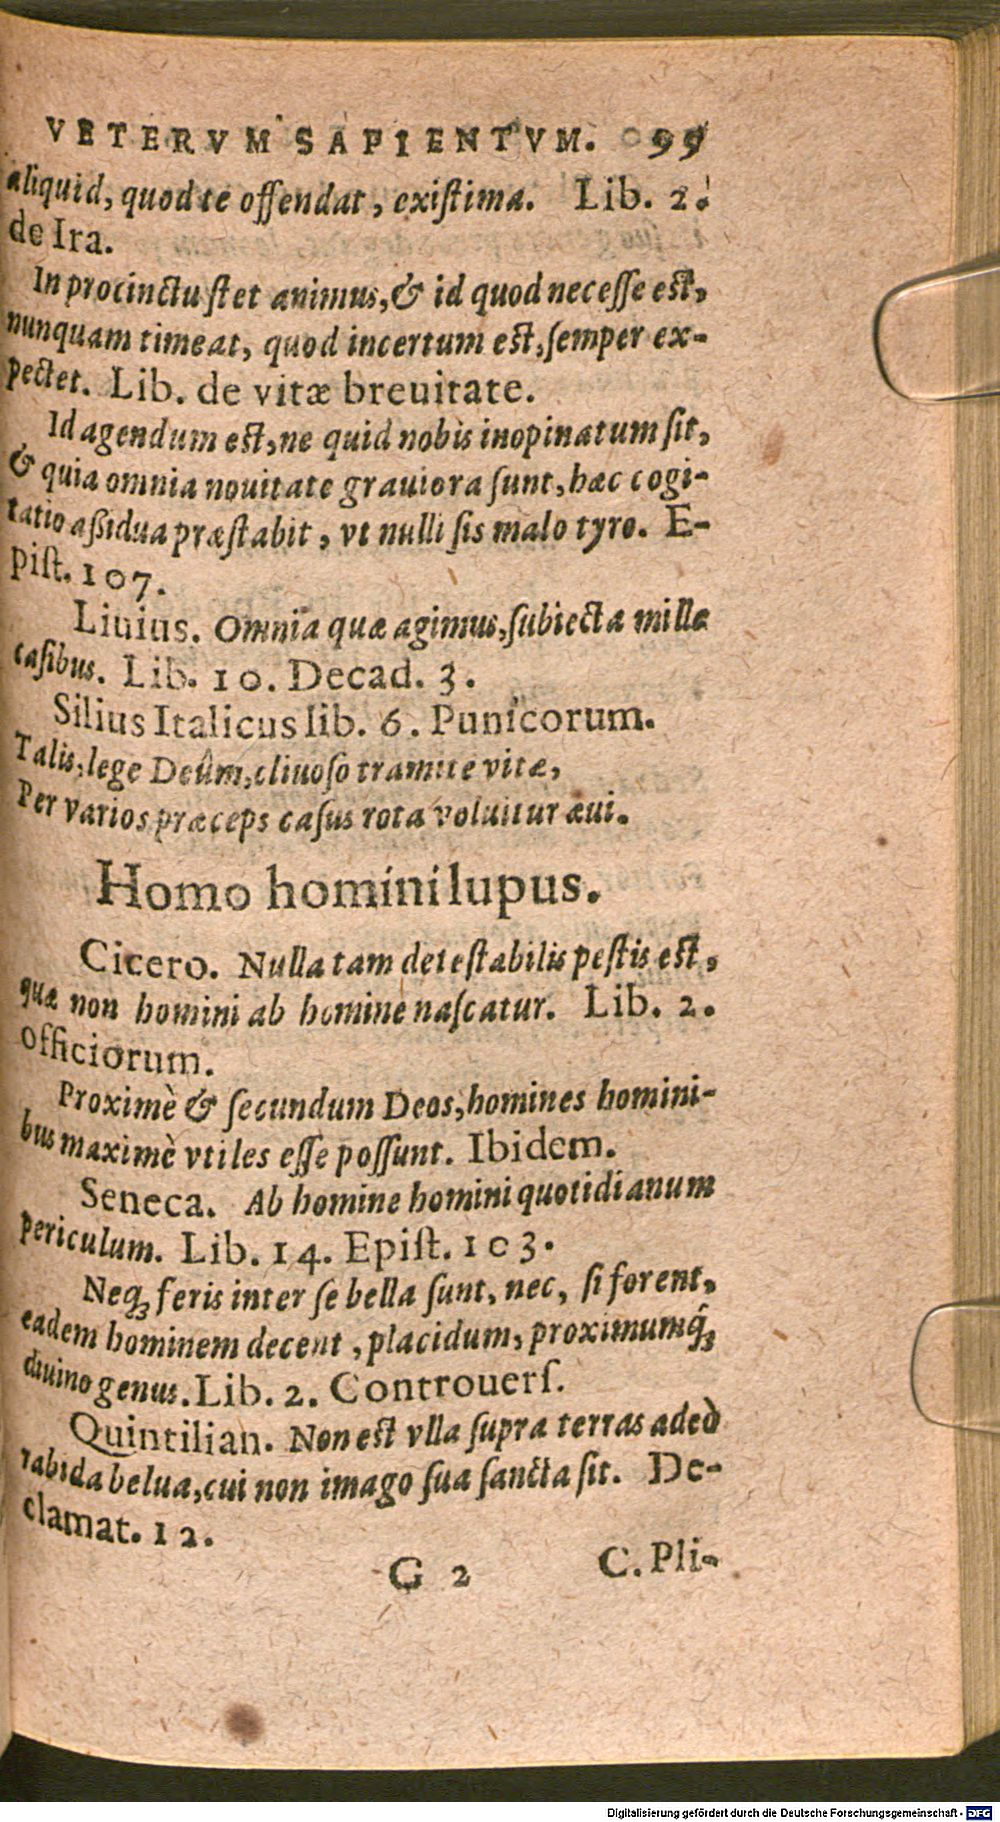 VETERVM SAPIENTVM. 99
aliquid, quod te offendat, exiſtima. Lib. 2.
de Ira.
In procinctu ſtet animus, & id quod neceſſe eſt,
nunquam timeat, quod incertum eſt, ſemper ex-
pectet. Lib. de vitæ breuitate.
Id agendum eſt, ne quid nobis inopinatum ſit,
& quia omnia nouitate grauiora ſunt, hæc cogi-
tatio aſſidua præſtabit, vt nulli ſis malo tyro. E-
piſt. 107.
Liuius. Omnia quæ agimus, ſubiecta mille
caſibus. Lib. 10. Decad. 3.
Silius Italicus lib. 6. Punicorum.
Talis, lege Deûm, cliuoſo tramite vitæ,
Per varios præceps caſus rota voluitur æui.
Homo homini lupus.
Cicero. Nulla tam deteſtabilis peſtis eſt,
quæ non homini ab homine naſcatur. Lib. 2.
officiorum.
Proximè & ſecundum Deos, homines homini-
bus maximè vtiles eſſe poſſunt. Ibidem.
Seneca. Ab homine homini quotidianum
periculum. Lib. 14. Epiſt. 103.
Neq; feris inter ſe bella ſunt, nec, ſi forent,
eadem hominem decent, placidum, proximumq́;
diuino genus. Lib. 2. Controuerſ.
Quintilian. Non eſt vlla ſupra terras adeò
rabida belua, cui non imago ſua ſancta ſit. De-
clamat. 12.
G 2 C. Pli-
Digitalisierung gefördert durch die Deutsche Forschungsgemeinschaft - DFG